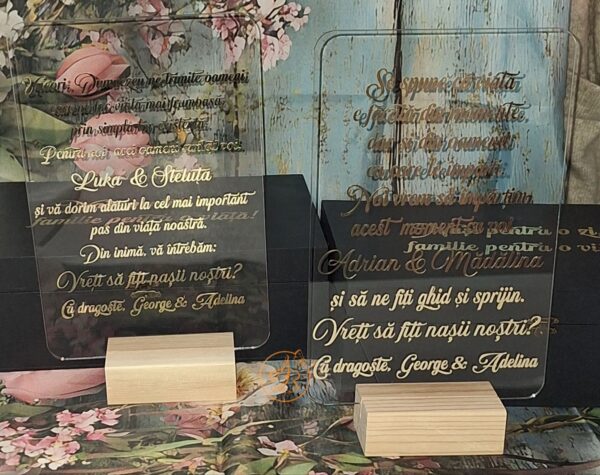 Uneori, Dumnezeu ne trimite oameni
mai frumoasă,
prin simpla lor existență.
Pentru noi, acei oameni
Luka & Steluța
și vă dorim alături la cel mai important
pas din viața noastră.
Din inimă, vă întrebăm:
Vreți să fiți nașii noștri?
Cu dragoste, George & Adelina
familie pentru o viață!
Se spune că viața
e făcută din momente
dar și din oameni
Noi vrem să împărțim
acest moment cu voi
Adrian & Mădălina
și să ne fiți ghid și sprijin.
Vreți să fiți nașii noștri?
Cu dragoste, George & Adelina
pentru o zi,
familie pentru o vi